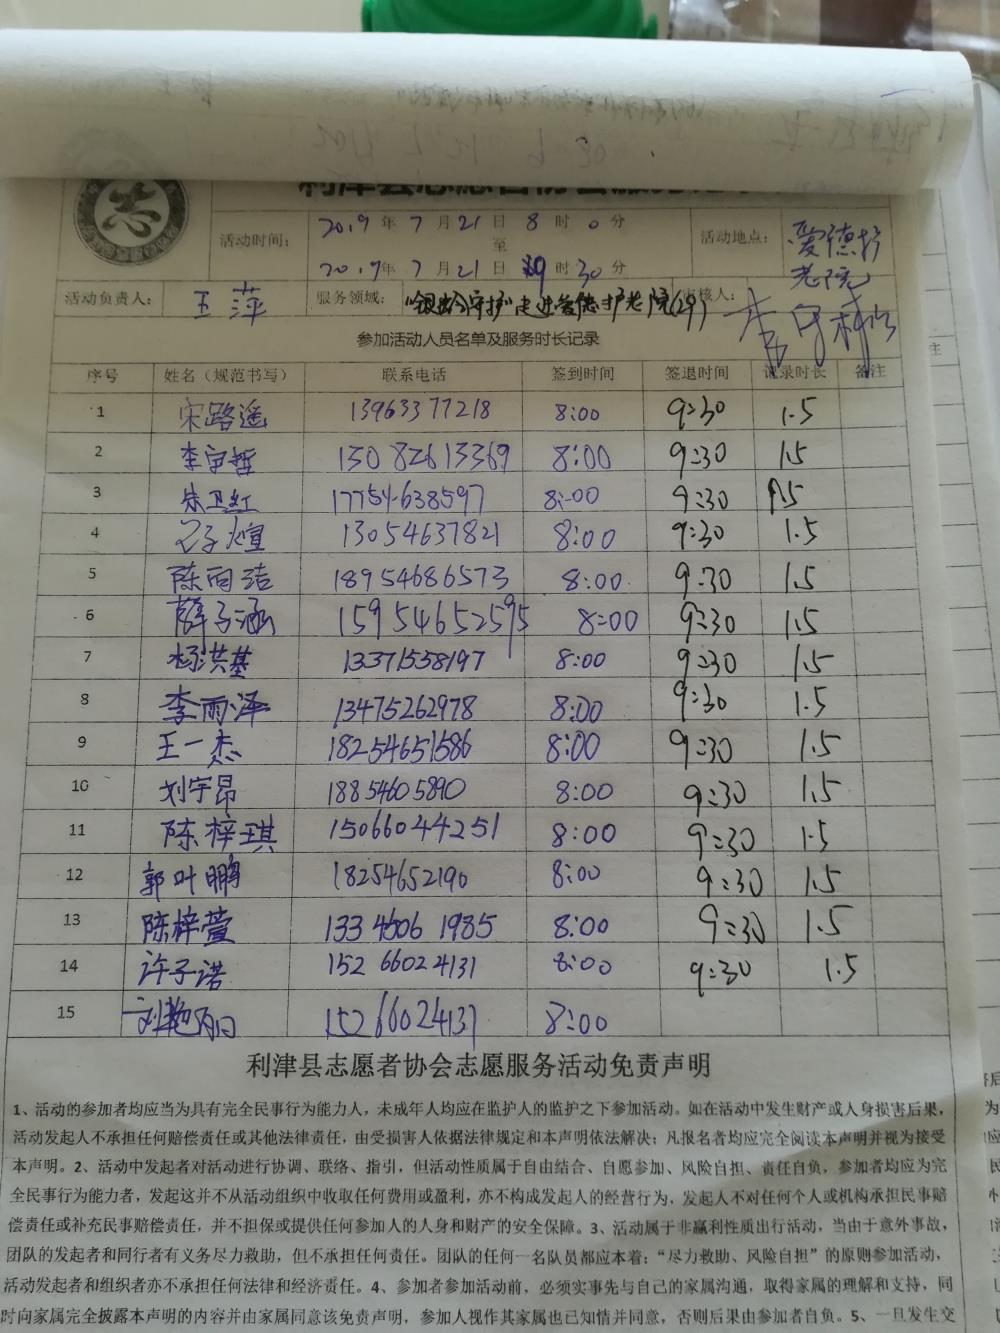 志
利津县志愿者协会服务记录
活动时间： 2019年 7月21日 8时0分
至
2019年 7月21日 9时30分
活动地点： 爱德护老院
活动负责人： 王萍 服务领域： "银龄守护"走进爱德护老院(29) 审核人：
参加活动人员名单及服务时长记录
序号 姓名（规范书写） 联系电话 签到时间 签退时间 记录时长 备注
1 宋路遥 13963377218 8:00 9:30 1.5
2 李宇哲 13082613369 8:00 9:30 1.5
3 朱卫红 17754638597 8:00 9:30 1.5
4 子煊 13054637821 8:00 9:30 1.5
5 陈雨洁 18954686573 8:00 9:30 1.5
6 薛子涵 15954652595 8:00 9:30 1.5
7 杨洪基 13371558197 8:00 9:30 1.5
8 李雨泽 13475262978 8:00 9:30 1.5
9 王一杰 18254651586 8:00 9:30 1.5
10 刘宇昂 18854605890 8:00 9:30 1.5
11 陈梓琪 15066044251 8:00 9:30 1.5
12 郭叶鹏 18254652190 8:00 9:30 1.5
13 陈梓萱 13346061985 8:00 9:30 1.5
14 许子诺 15266024131 8:00 9:30 1.5
15 刘艳丽 15266024131 8:00
利津县志愿者协会志愿服务活动免责声明
1、活动的参加者均应当为具有完全民事行为能力人，未成年人均应在监护人的监护之下参加活动。如在活动中发生财产或人身损害后果，
活动发起人不承担任何赔偿责任或其他法律责任，由受损害人依据法律规定和本声明依法解决；凡报名者均应完全阅读本声明并视为接受
本声明。2、活动中发起者对活动进行协调、联络、指引，但活动性质属于自由结合、自愿参加、风险自担、责任自负，参加者均应为完
全民事行为能力者，发起这并不从活动组织中收取任何费用或盈利，亦不构成发起人的经营行为，发起人不对任何个人或机构承担民事赔
偿责任或补充民事赔偿责任，并不担保或提供任何参加人的人身和财产的安全保障。3、活动属于非赢利性质出行活动，当由于意外事故，
团队的发起者和同行者有义务尽力救助，但不承担任何责任。团队的任何一名队员都应本着："尽力救助、风险自担"的原则参加活动，
活动发起者和组织者亦不承担任何法律和经济责任。4、参加者参加活动前，必须实事先与自己的家属沟通，取得家属的理解和支持，同
时向家属完全披露本声明的内容并由家属同意该免责声明，参加人视作其家属也已知情并同意，否则后果由参加者自负。5、一旦发生交